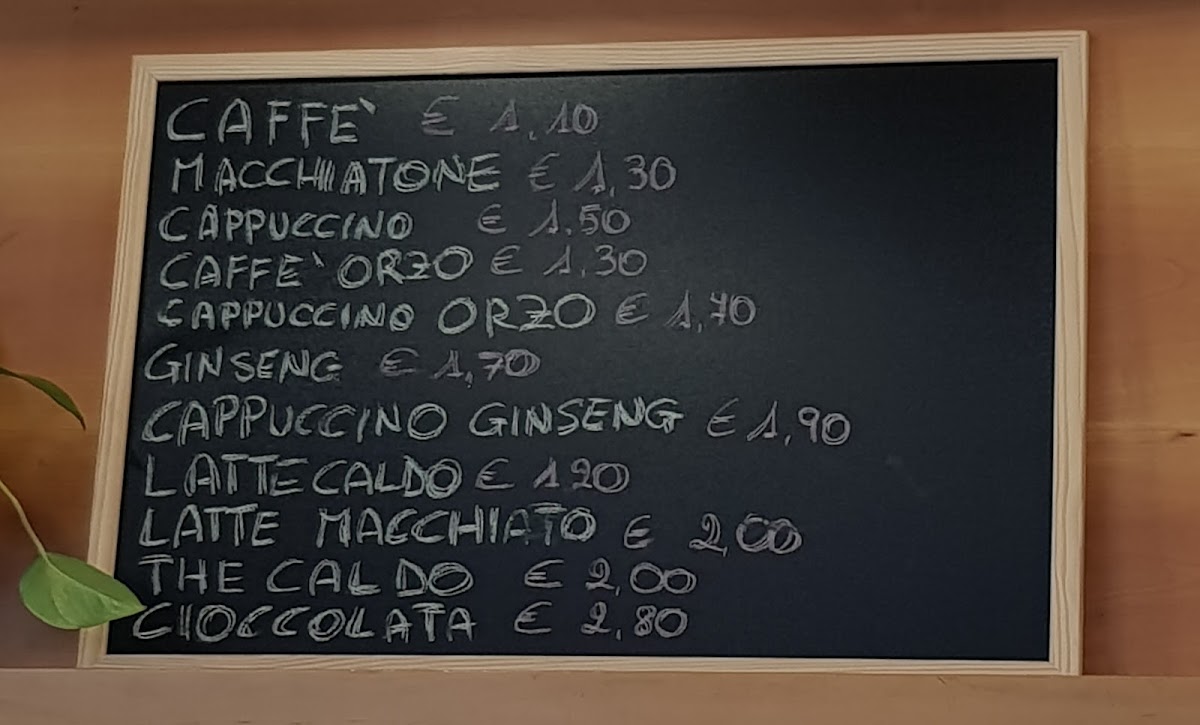 CAFFE` € 1,10
MACCHIATONE € 1,30
CAPPUCCINO € 1,50
CAFFE` ORZO € 1,30
CAPPUCCINO ORZO € 1,70
GINSENG € 1,70
CAPPUCCINO GINSENG € 1,90
LATTE CALDO € 1 20
LATTE MACCHIATO € 2,00
THE CALDO € 2,00
CIOCCOLATA € 2,80